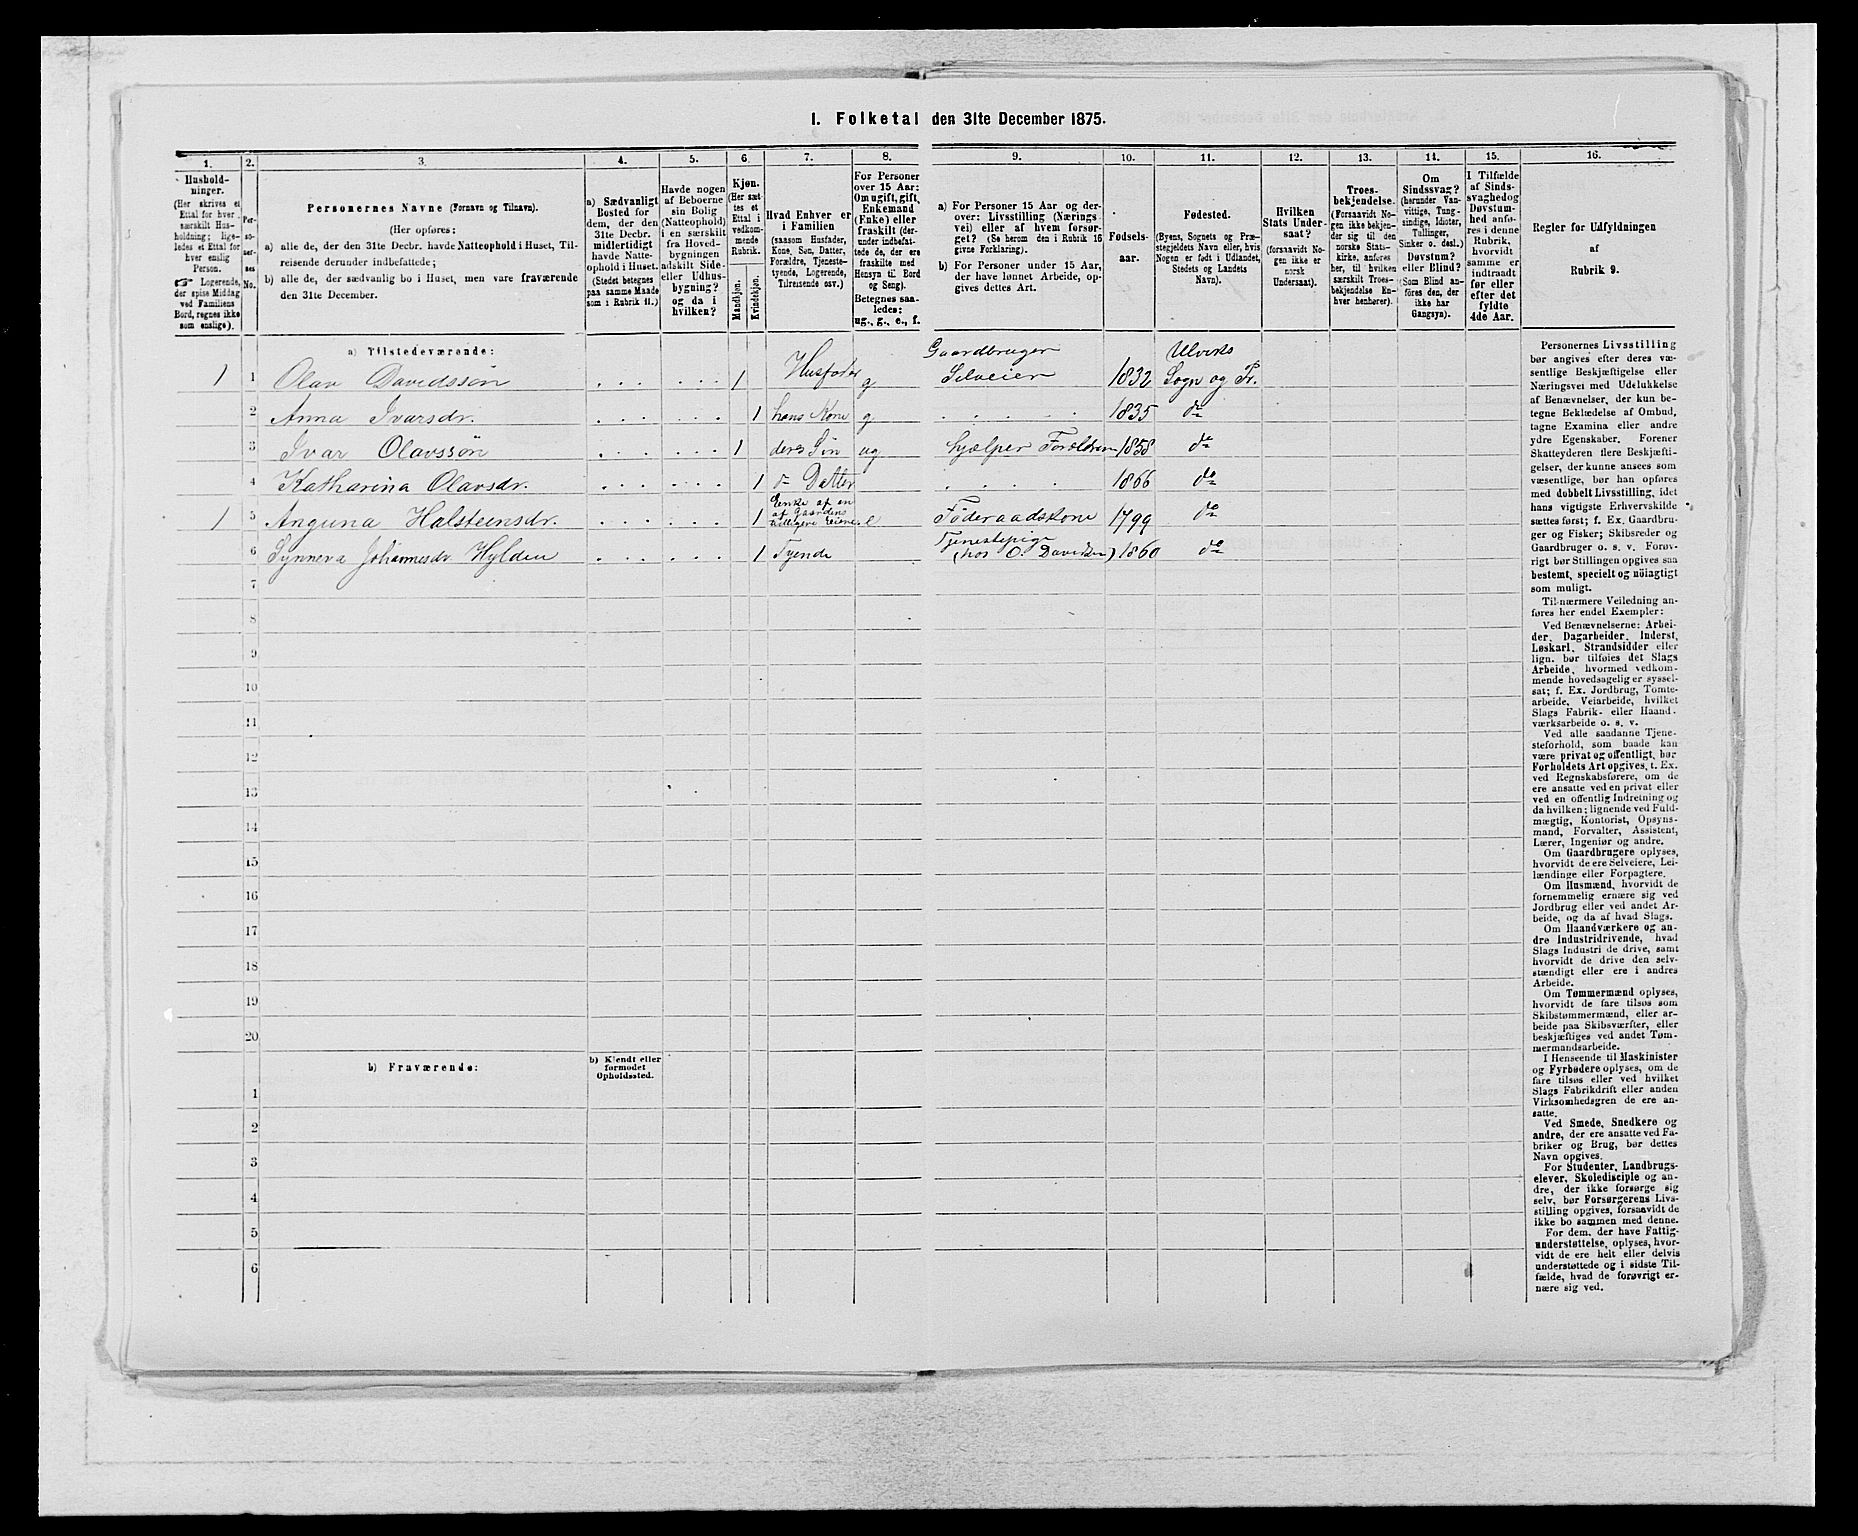 I. Folketal den 31te December 1875.
1. 2. 3. 4. 5. 6. 7. 8. 9. 10. 11. 12. 13. 14. 15. 16.
Hushold-
ninger.
(Her skrives et
Ettal for hver
særskilt Hus-
holdning; lige-
ledes et Ettal for
hver enslig
Person.
☞ Logerende,
der spise Middag
ved Familiens
Bord, regnes ikke
som enslige).
Per-
so-
ner-
nes
No.
Personernes Navne (Fornavn og Tilnavn).
(Her opføres:
a) alle de, der den 31te Decbr. havde Natteophold i Huset, Til-
reisende derunder indbefattede;
b) alle de, der sædvanlig bo i Huset, men vare fraværende
den 31te December.
a) Sædvanligt
Bosted for
dem, der den
31te Decbr.
midlertidigt
havde Natte-
ophold i Huset.
(Stedet betegnes
paa samme Maade
som i Rubrik 11.)
Havde nogen
af Beboerne
sin Bolig
(Natteophold)
i en særskilt
fra Hoved-
bygningen
adskilt Side-
eller Udhus-
bygning?
og da i
hvilken?
Kjøn.
(Her sæt-
tes et
Ettal i
vedkom-
mende
Rubrik.
Mandkjøn.
Kvindekjøn.
Hvad Enhver er
i Familien
(saasom Husfader,
Kone, Søn, Datter,
Forældre, Tjeneste-
tyende, Logerende,
Tilreisende osv.)
For Personer
over 15 Aar:
Om ugift, gift,
Enkemand
(Enke) eller
fraskilt (der-
under indbefat-
tede de, der ere
fraskilte med
Hensyn til Bord
og Seng).
Betegnes saa-
ledes:
ug., g., e., f.
a) For Personer 15 Aar og der-
over: Livsstilling (Nærings-
vei) eller af hvem forsør-
get? (Se herom den i Rubrik 16
givne Forklaring).
b) For Personer under 15 Aar,
der have lønnet Arbeide, op-
gives dettes Art.
Fødsels-
aar.
Fødested.
(Byens, Sognets og Præ-
stegjeldets Navn eller, hvis
Nogen er født i Udlandet,
Stedets og Landets
Navn).
Hvilken
Stats Under-
saat?
(forsaavidt No-
gen ikke er
norsk
Undersaat).
Troes-
bekjendelse.
(Forsaavidt No-
gen ikke bekjen-
der sig til den
norske Stats-
kirke, anføres
her, til hvilken
særskilt Troes-
bekjendelse En-
hver henhører).
Om
Sindssvag?
(herunder Van-
vittige, Tung-
sindige, Idioter,
Tullinger,
Sinker o. desl.)
Døvstum?
eller Blind?
(Som Blind an-
føres den, der
ikke har
Gangsyn).
I Tilfælde
af Sinds-
svaghed og
Døvstum-
hed anfø-
res i denne
Rubrik,
hvorvidt
samme er
indtraadt
før eller
efter det
fyldte
4de Aar.
Regler for Udfyldningen
af
Rubrik 9.
a) Tilstedeværende:
1 1 Olav Davidssøn 1 Husfader g Gaardbruger Selveier 1832 Ulviks Sogn og Pr.
2 Anna Ivarsdr. 1 hans Kone g 1835 do
3 Ivar Olavssøn 1 deres Søn ug hjælper Forældrene 1858 do
4 Katharina Olavsdr. 1 do Datter 1866 do
1 5 Anguna Halsteensdr. 1 Enke af en af Gaardens tidligere Eiere. e Føderaadskone 1799 do
6 Synneva Johannesdr Hylden 1 Tyende Tjenestepige (hos O. Davidsen) 1860 do
7
8
9
10
11
12
13
14
15
16
17
18
19
20
b) Fraværende:
b) Kjendt eller
formodet
Opholdssted.
1
2
3
4
5
6
Personernes Livsstilling
bør angives efter deres væ-
sentlige Beskjæftigelse eller
Næringsvei med Udelukkelse
af Benævnelser, der kun be-
tegne Beklædelse af Ombud,
tagne Examina eller andre
ydre Egenskaber. Forener
Skatteyderen flere Beskjæfti-
gelser, der kunne ansees som
væsentlige, bør han opføres
med dobbelt Livsstilling, idet
hans vigtigste Erhvervskilde
sættes først; f. Ex. Gaardbru-
ger og Fisker; Skibsreder og
Gaardbruger o. s. v. Forøv-
rigt bør Stillingen opgives saa
bestemt, specielt og nöiagtigt
som muligt.
Til nærmere Veiledning an-
føres her endel Exempler:
Ved Benævnelserne: Arbei-
der, Dagarbeider, Inderst,
Løskarl, Strandsidder eller
lign. bør tilføies det Slags
Arbeide, hvormed vedkom-
mende hovedsagelig er syssel-
sat; f. Ex. Jordbrug, Tomte-
arbeide, Veiarbeide, hvilket
Slags Fabrik- eller Haand-
værksarbeide o. s. v.
Ved alle saadanne Tjene-
steforhold, som baade kan
være privat og offentligt, bør
Forholdets Art opgives, f. Ex.
ved Regnskabsførere, om de
ere ansatte ved en privat eller
ved en offentlig Indretning og
da hvilken; lignende ved Fuld-
mægtig, Kontorist, Opsyns-
mand, Forvalter, Assistent,
Lærer, Ingeniør og andre.
Om Gaardbrugere oplyses,
hvorvidt de ere Selveiere, Lei-
lændinge eller Forpagtere.
Om Husmænd, hvorvidt de
fornemmelig ernære sig ved
Jordbrug eller ved andet Ar-
beide, og da af hvad Slags.
Om Haandværkere og an-
dre Industridrivende, hvad
Slags Industri de drive, samt
hvorvidt de drive den selv-
stændigt eller ere i andres
Arbeide.
Om Tømmermænd oplyses,
hvorvidt de fare tilsøs som
Skibstømmermænd, eller ar-
beide paa Skibsværfter, eller
beskjæftiges ved andet Tøm-
mermandsarbeide.
I Henseende til Maskinister
og Fyrbødere oplyses, om de
fare tilsøs eller ved hvilket
Slags Fabrikdrift eller anden
Virksomhedsgren de ere an-
satte.
Ved Smede, Snedkere og
andre, der ere ansatte ved Fa-
briker og Brug, bør dettes
Navn opgives.
For Studenter, Landbrugs-
elever, Skoledisciple og an-
dre, der ikke forsørge sig
selv, bør Forsørgerens Livs-
stilling opgives, forsaavidt de
ikke bo sammen med denne.
For dem, der have Fattig-
understøttelse, oplyses, hvor-
vidt de ere helt eller delvis
understøttede og i sidste Til-
fælde, hvad de forøvrigt er-
nære sig ved.